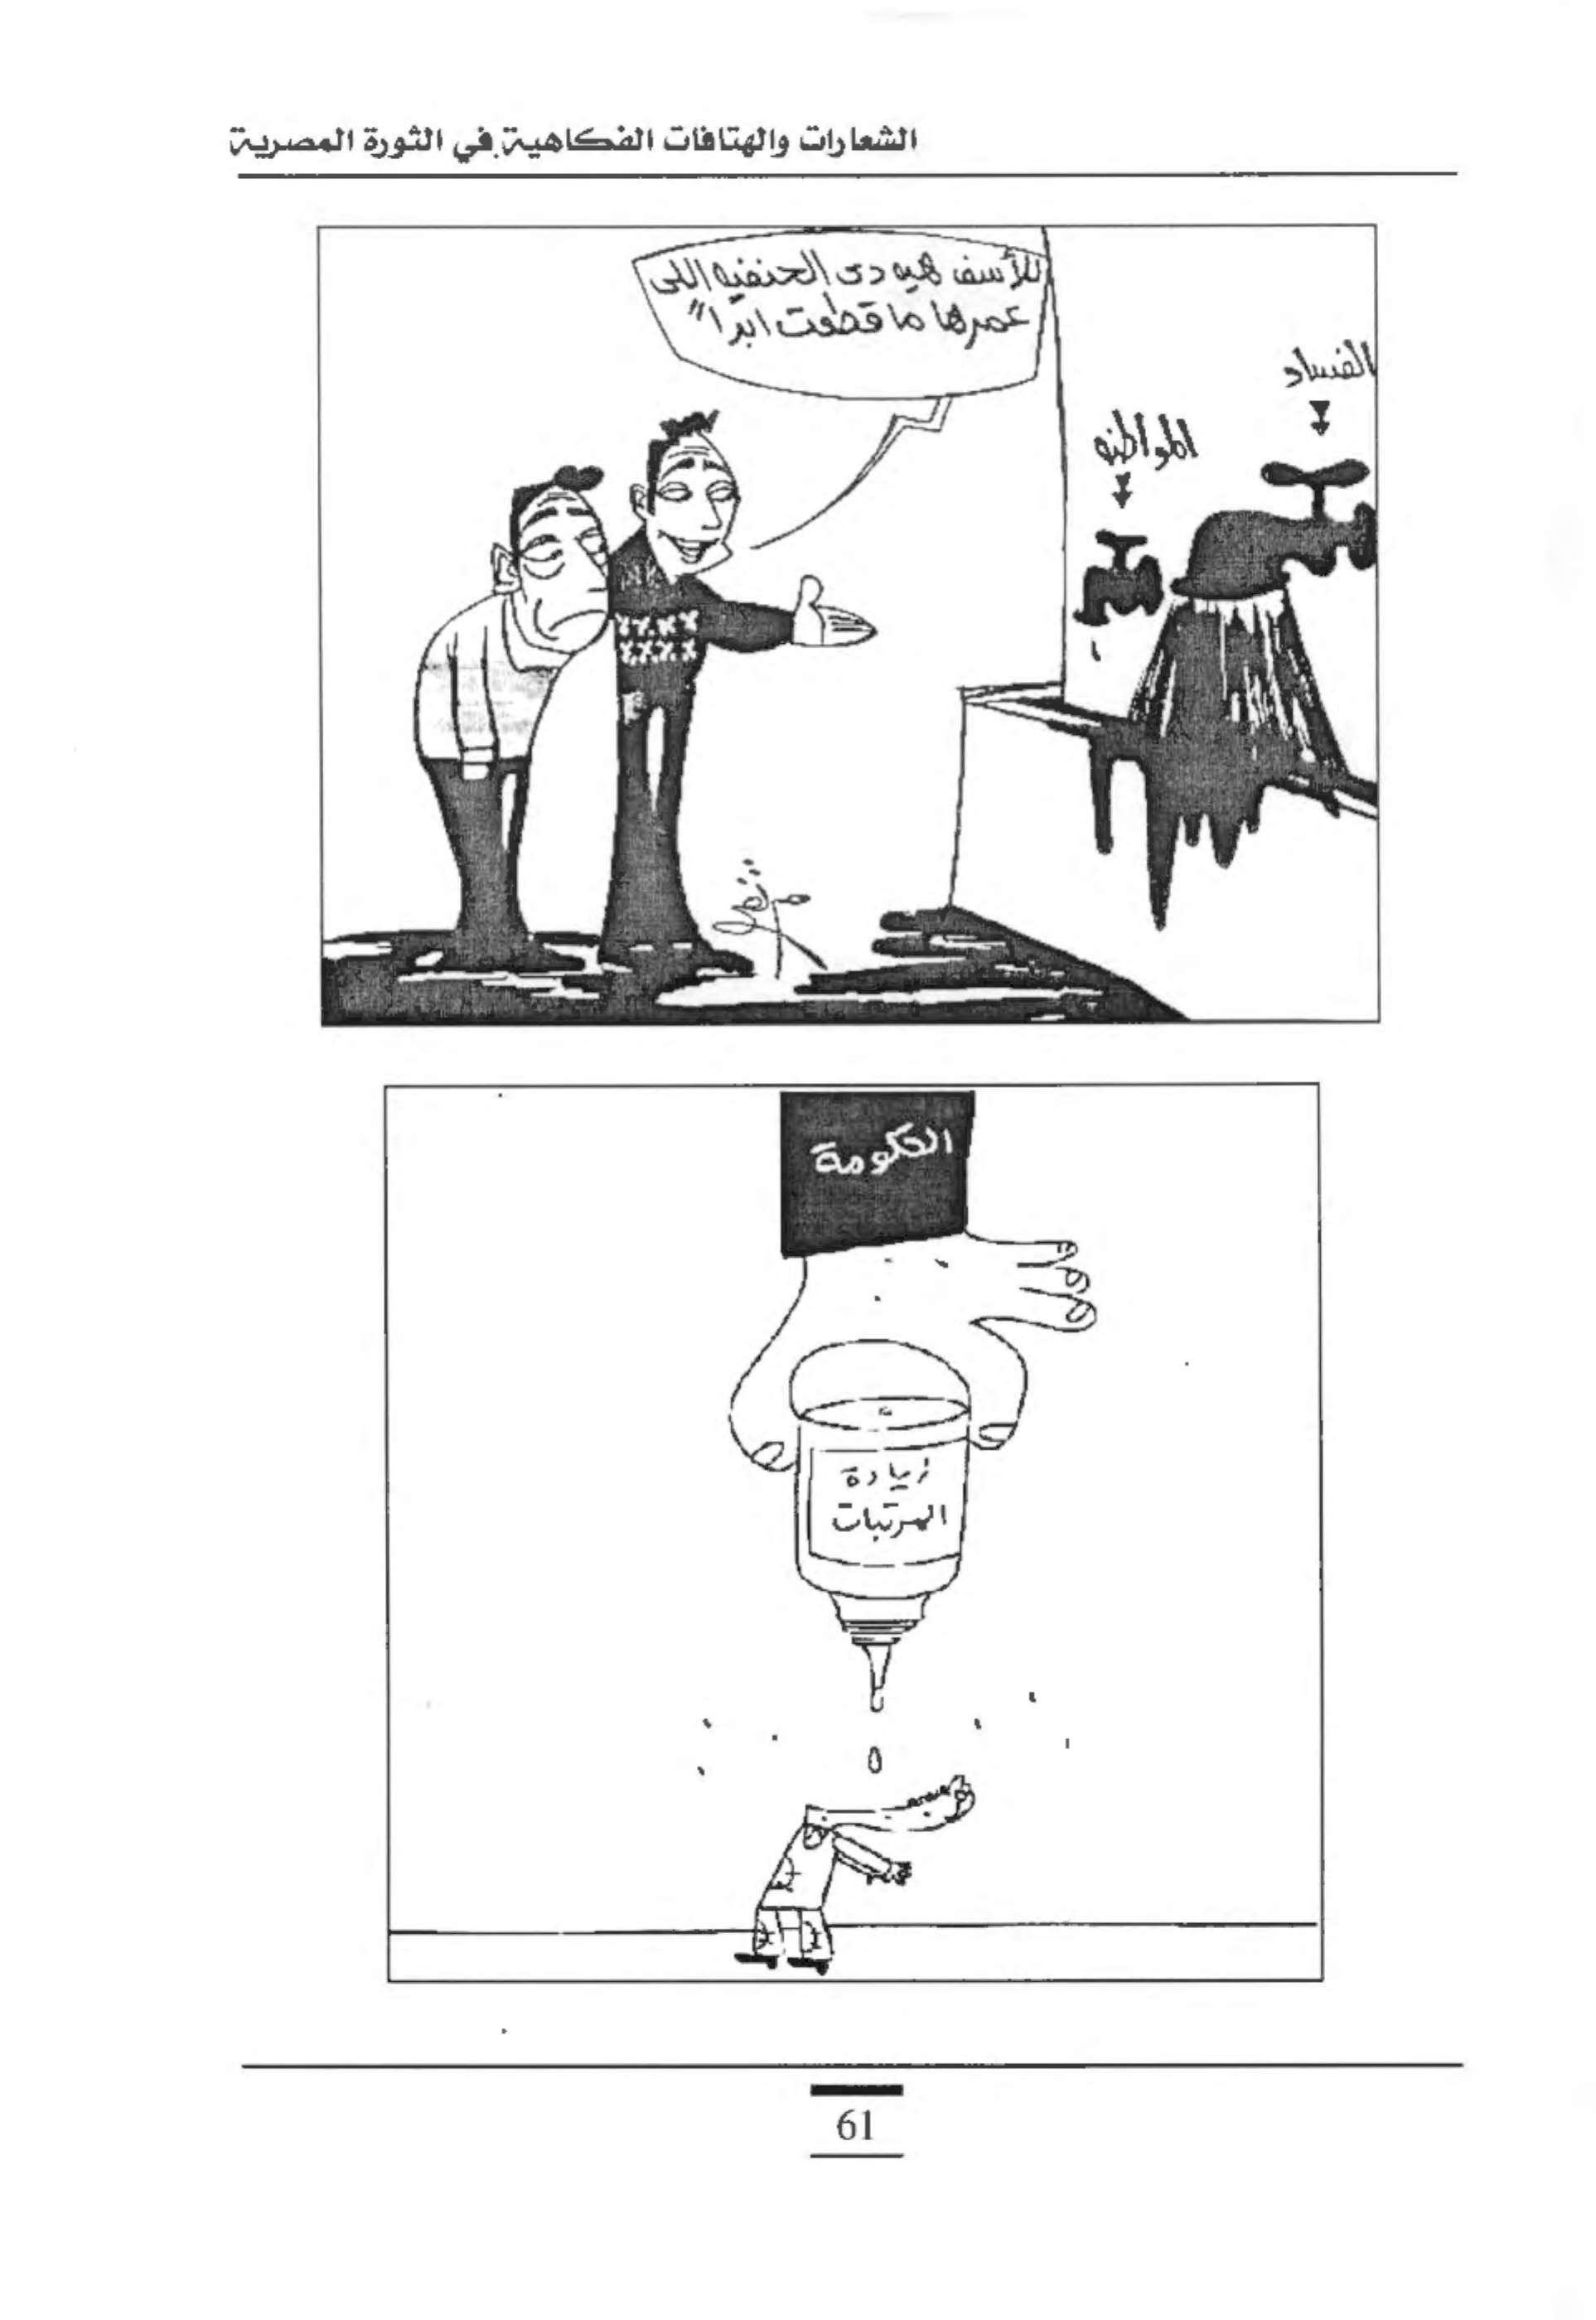 الشعارات والهتافات الفكاهية في الثورة المصرية
للأسف هيه دى الحنفيه اللى
عمرها ما قطعت ابدا"
الفساد
المواطنه
الحكومة
زيادة
المرتبات
61